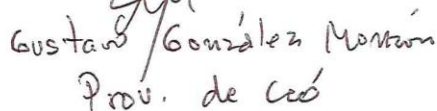 Gustavo González Monzón
Prov. de